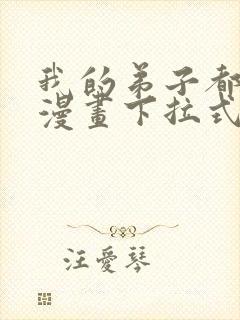 我的弟子都
漫畫下拉式
汪愛琴